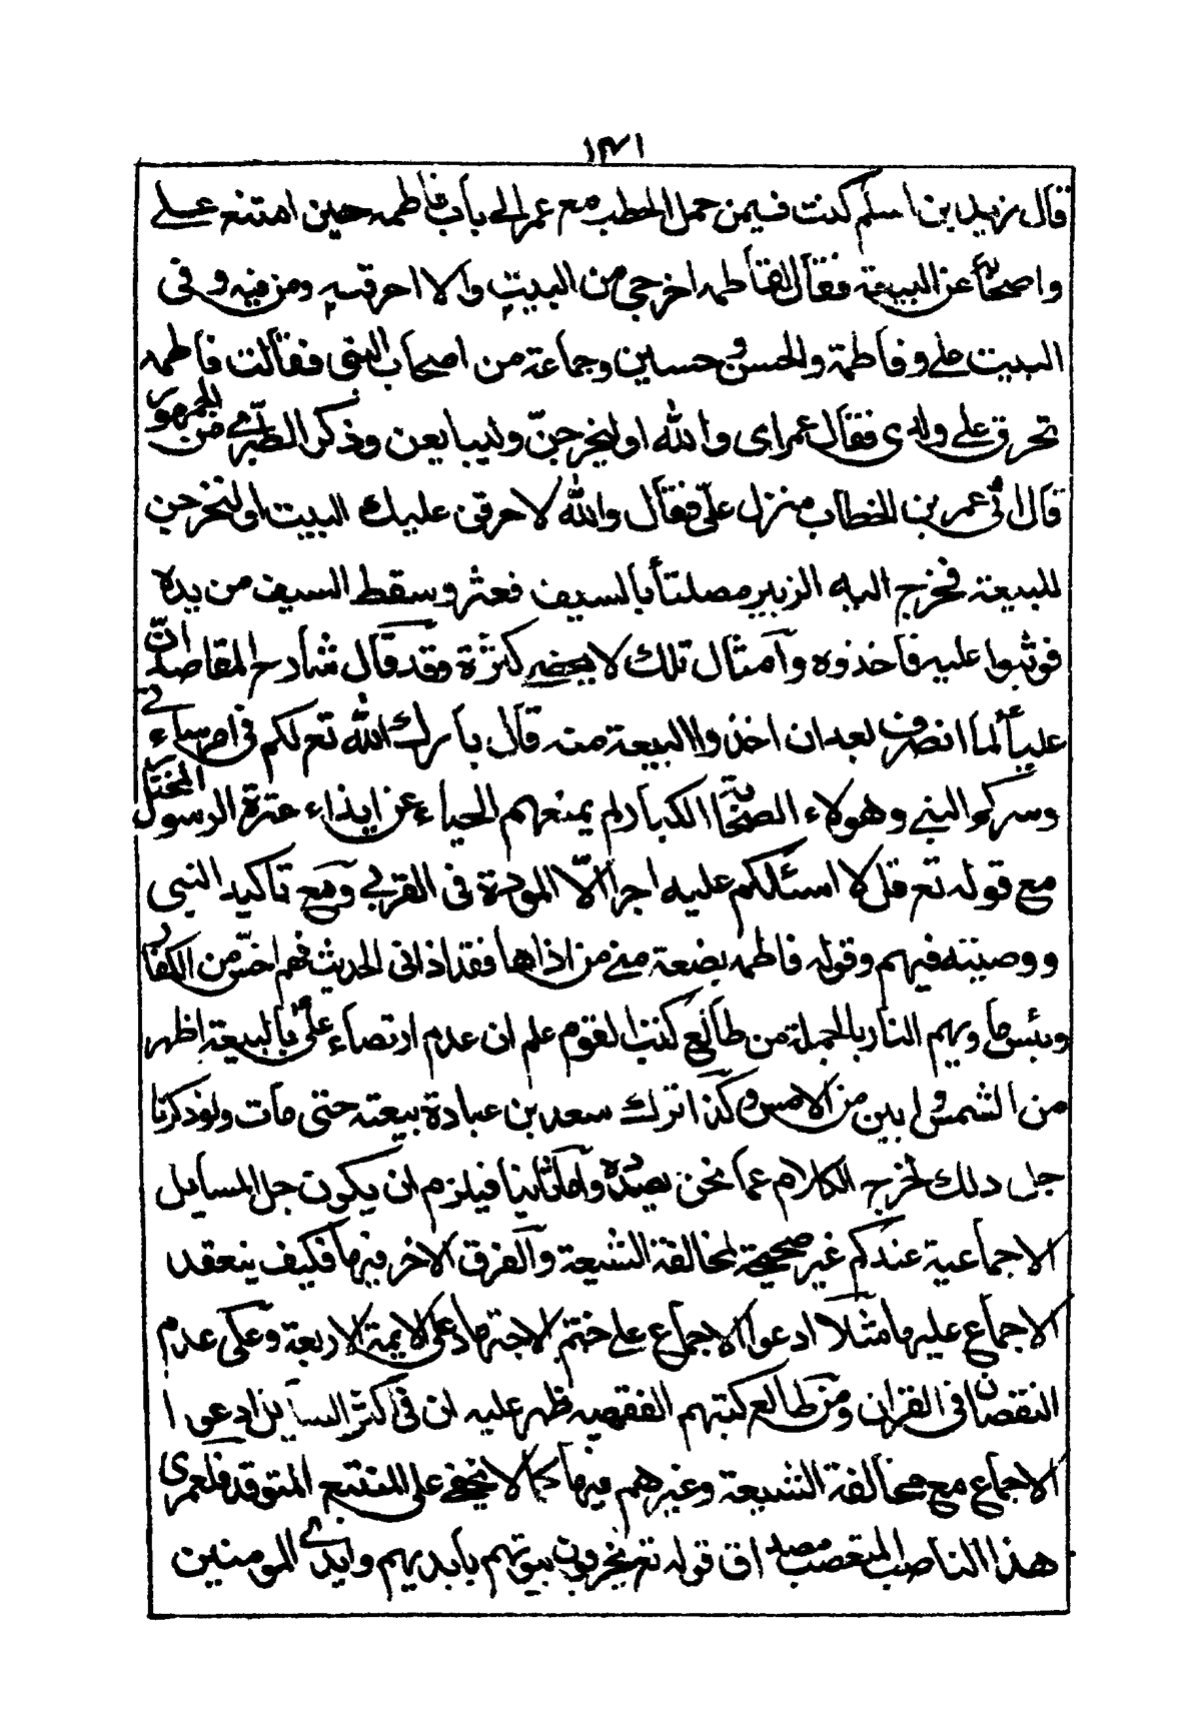 ١٣٧١
قال زيد بن اسلم كنت فيمن حمل الحطب مع عمر الى باب فاطمه حين امتنع على
واصحابه عن البيعة فقال لفاطمه اخرجي من البيت والا احرقته ومن فيه وفى
البيت على وفاطمة والحسن وحسين وجماعة من اصحاب النبى فقالت فاطمه
تحرق على ولدى فقال عمر اى والله او ليخرجنّ وليبايعن وذكر الطبرى من الجمهور
قال اتى عمر بن الخطاب منزل علىّ فقال والله لاحرقن عليك البيت او لتخرجن
للبيعة فخرج اليه الزبير مصلتاً بالسيف فعثر وسقط السيف من يده
فوثبوا عليه فاخذوه وامثال تلك لا يحصر كثرة وقد قال شارح المقاصد انّ
علياً لما انصرف بعد ان اخذوا البيعة منه قال بارك الله تع لكم فى امر ساءنى
وسركم النبى وهولاء الصحابة الكبار لم يمنعهم الحياء عن ايذاء عترة الرسول المختار
مع قوله تع قل لا اسئلكم عليه اجرا الّا المودة فى القربى ومع تاكيد النبى
ووصيته فيهم وقوله فاطمه بضعة منى من اذاها فقد اذانى الحديث فهم اخسّ من الكفار
وبئس ماويهم النار بالجملة من طالع كتب القوم علم ان عدم ارتضاء علىّ بالبيعة اظهر
من الشمس وابين من الامس وكذا ترك سعد بن عبادة بيعته حتى مات ولو ذكرنا
جل ذلك لخرج الكلام عما نحن بصدده واما ثانيا فيلزم ان يكون جل المسايل
الاجماعية عندكم غير صحيحة لمخالفة الشيعة والفرق الاخر فيها فكيف ينعقد
الاجماع عليها مثلا ادعوا الاجماع على ختم الاجتهاد على الايمة الاربعة وعلى عدم
النقصان فى القران ومن طالع كتبهم الفقهيه ظهر عليه ان فى اكثر المسايل ادعوا
الاجماع مع مخالفة الشيعة وغيرهم فيها كما لا يخفى على المتتبع المتوقد فلعمرى
هذا الناصب المتعصب مصداق قوله تع يخربون بيوتهم بايديهم وايدى المومنين